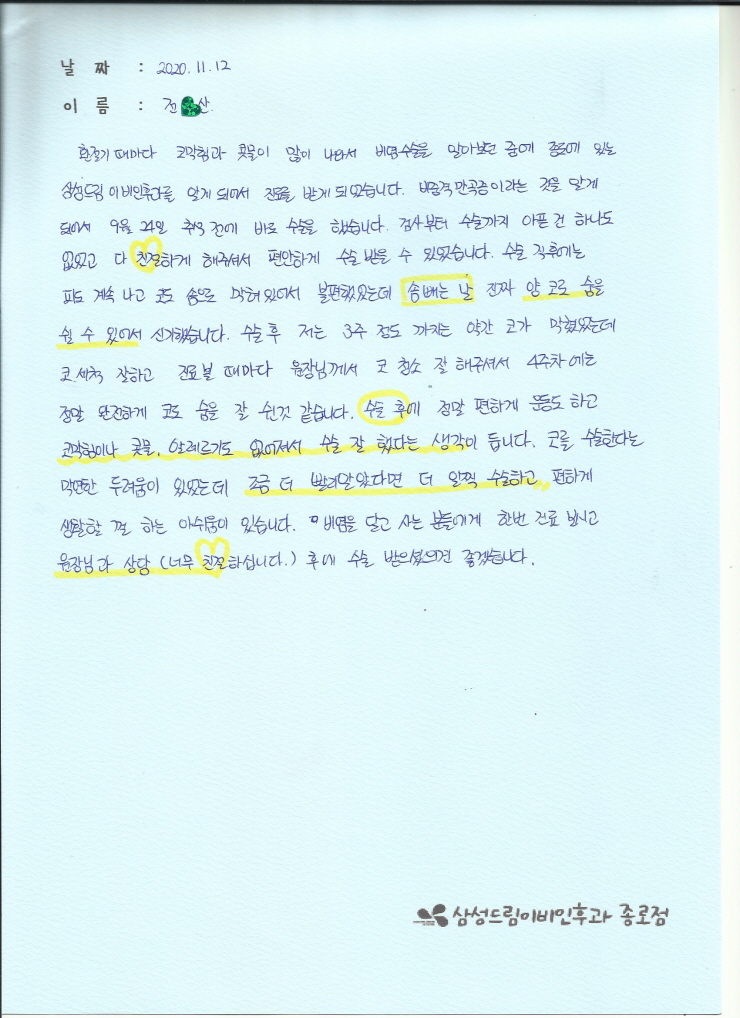 날 짜 : 2020.11.12
이 름 : 전 산
환절기 때마다 코막힘과 콧물이 많이 나와서 비염수술을 알아보던 중에 종로에 있는
삼성드림이비인후과를 알게 되어서 진료를 받게 되었습니다. 비중격만곡증이라는 것을 알게
되어서 9월 24일 추석 전에 바로 수술을 했습니다. 검사부터 수술까지 아픈 건 하나도
없었고 다 친절하게 해주셔서 편안하게 수술 받을 수 있었습니다. 수술 직후에는
피도 계속 나고 코도 솜으로 막혀있어서 불편했었는데 솜 빼는 날 진짜 양 코로 숨을
쉴 수 있어서 신기했습니다. 수술 후 저는 3주 정도 까지는 약간 코가 막혔었는데
코세척 잘하고 진료볼 때마다 원장님께서 코 청소 잘 해주셔서 4주차에는
정말 완전하게 코도 숨을 잘 쉰것 같습니다. 수술 후에 정말 편하게 운동도 하고
코막힘이나 콧물, 알레르기도 없어져서 수술 잘 했다는 생각이 듭니다. 코를 수술한다는
막연한 두려움이 있었는데 조금 더 빨리알았다면 더 일찍 수술하고 편하게
생활할 껄 하는 아쉬움이 있습니다. 비염을 달고 사는 분들에게 한번 진료 보시고
원장님과 상담 (너무 친절하십니다.) 후에 수술 받으셨으면 좋겠습니다.
삼성드림이비인후과 종로점